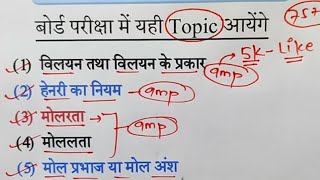 बोर्ड परीक्षा में यही Topic आयेंगे 75+
(1) विलयन तथा विलयन के प्रकार amp 5k-Like
(2) हेनरी का नियम - amp
(3) मोलरता amp
(4) मोललता
(5) मोल प्रभाज या मोल अंश